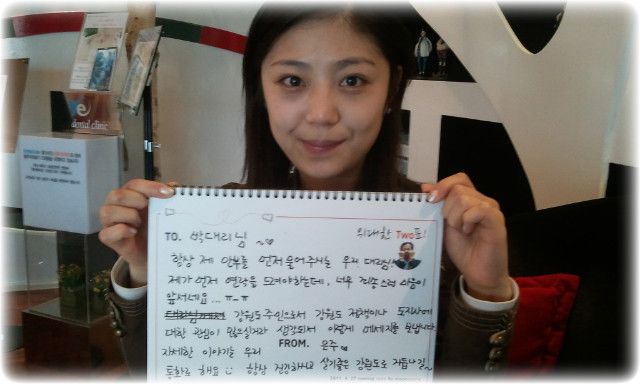 dental clinic
위대한 Two표!
TO. 박대리님 ~
항상 제 안부를 먼저 물어주시는 우리 대리님!
제가 먼저 연락을 드려야하는데, 너무 죄송스런 마음이
앞서네요... ㅠ-ㅠ
강원도주민으로서 강원도 정책이나 도지사에
대한 관심이 많으실거라 생각되서 이렇게 메세지를 보냅니다.
자세한 이야기는 우리 FROM. 은주
통화로 해요 항상 건강하시고 살기좋은 강원도로 거듭나길~